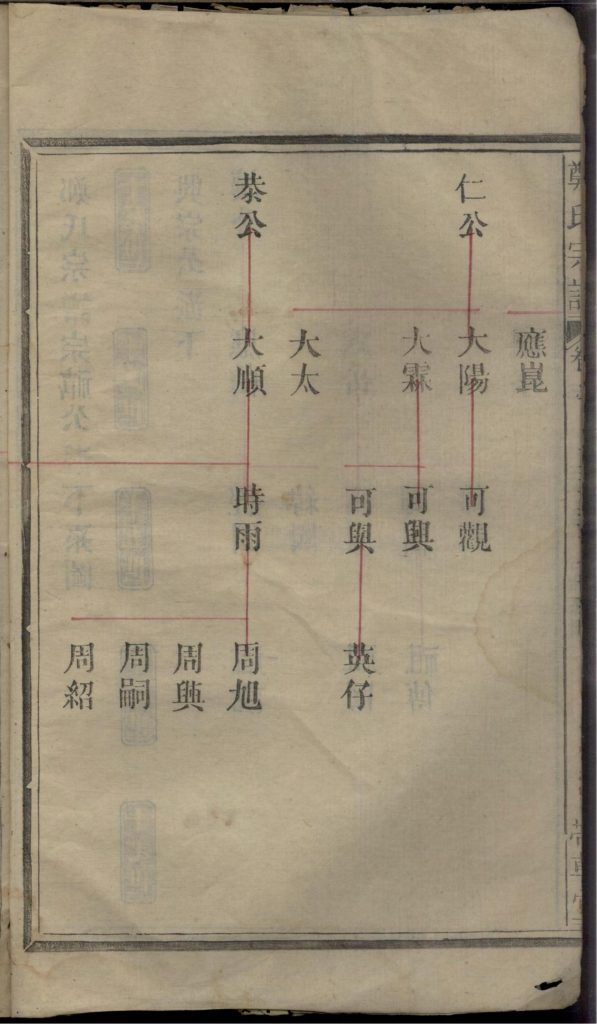 鄭氏宗譜
應崑
仁公
大陽
可觀
大霖
可興
可與
英仔
大太
恭公
大順
時雨
周旭
周與
周嗣
周紹